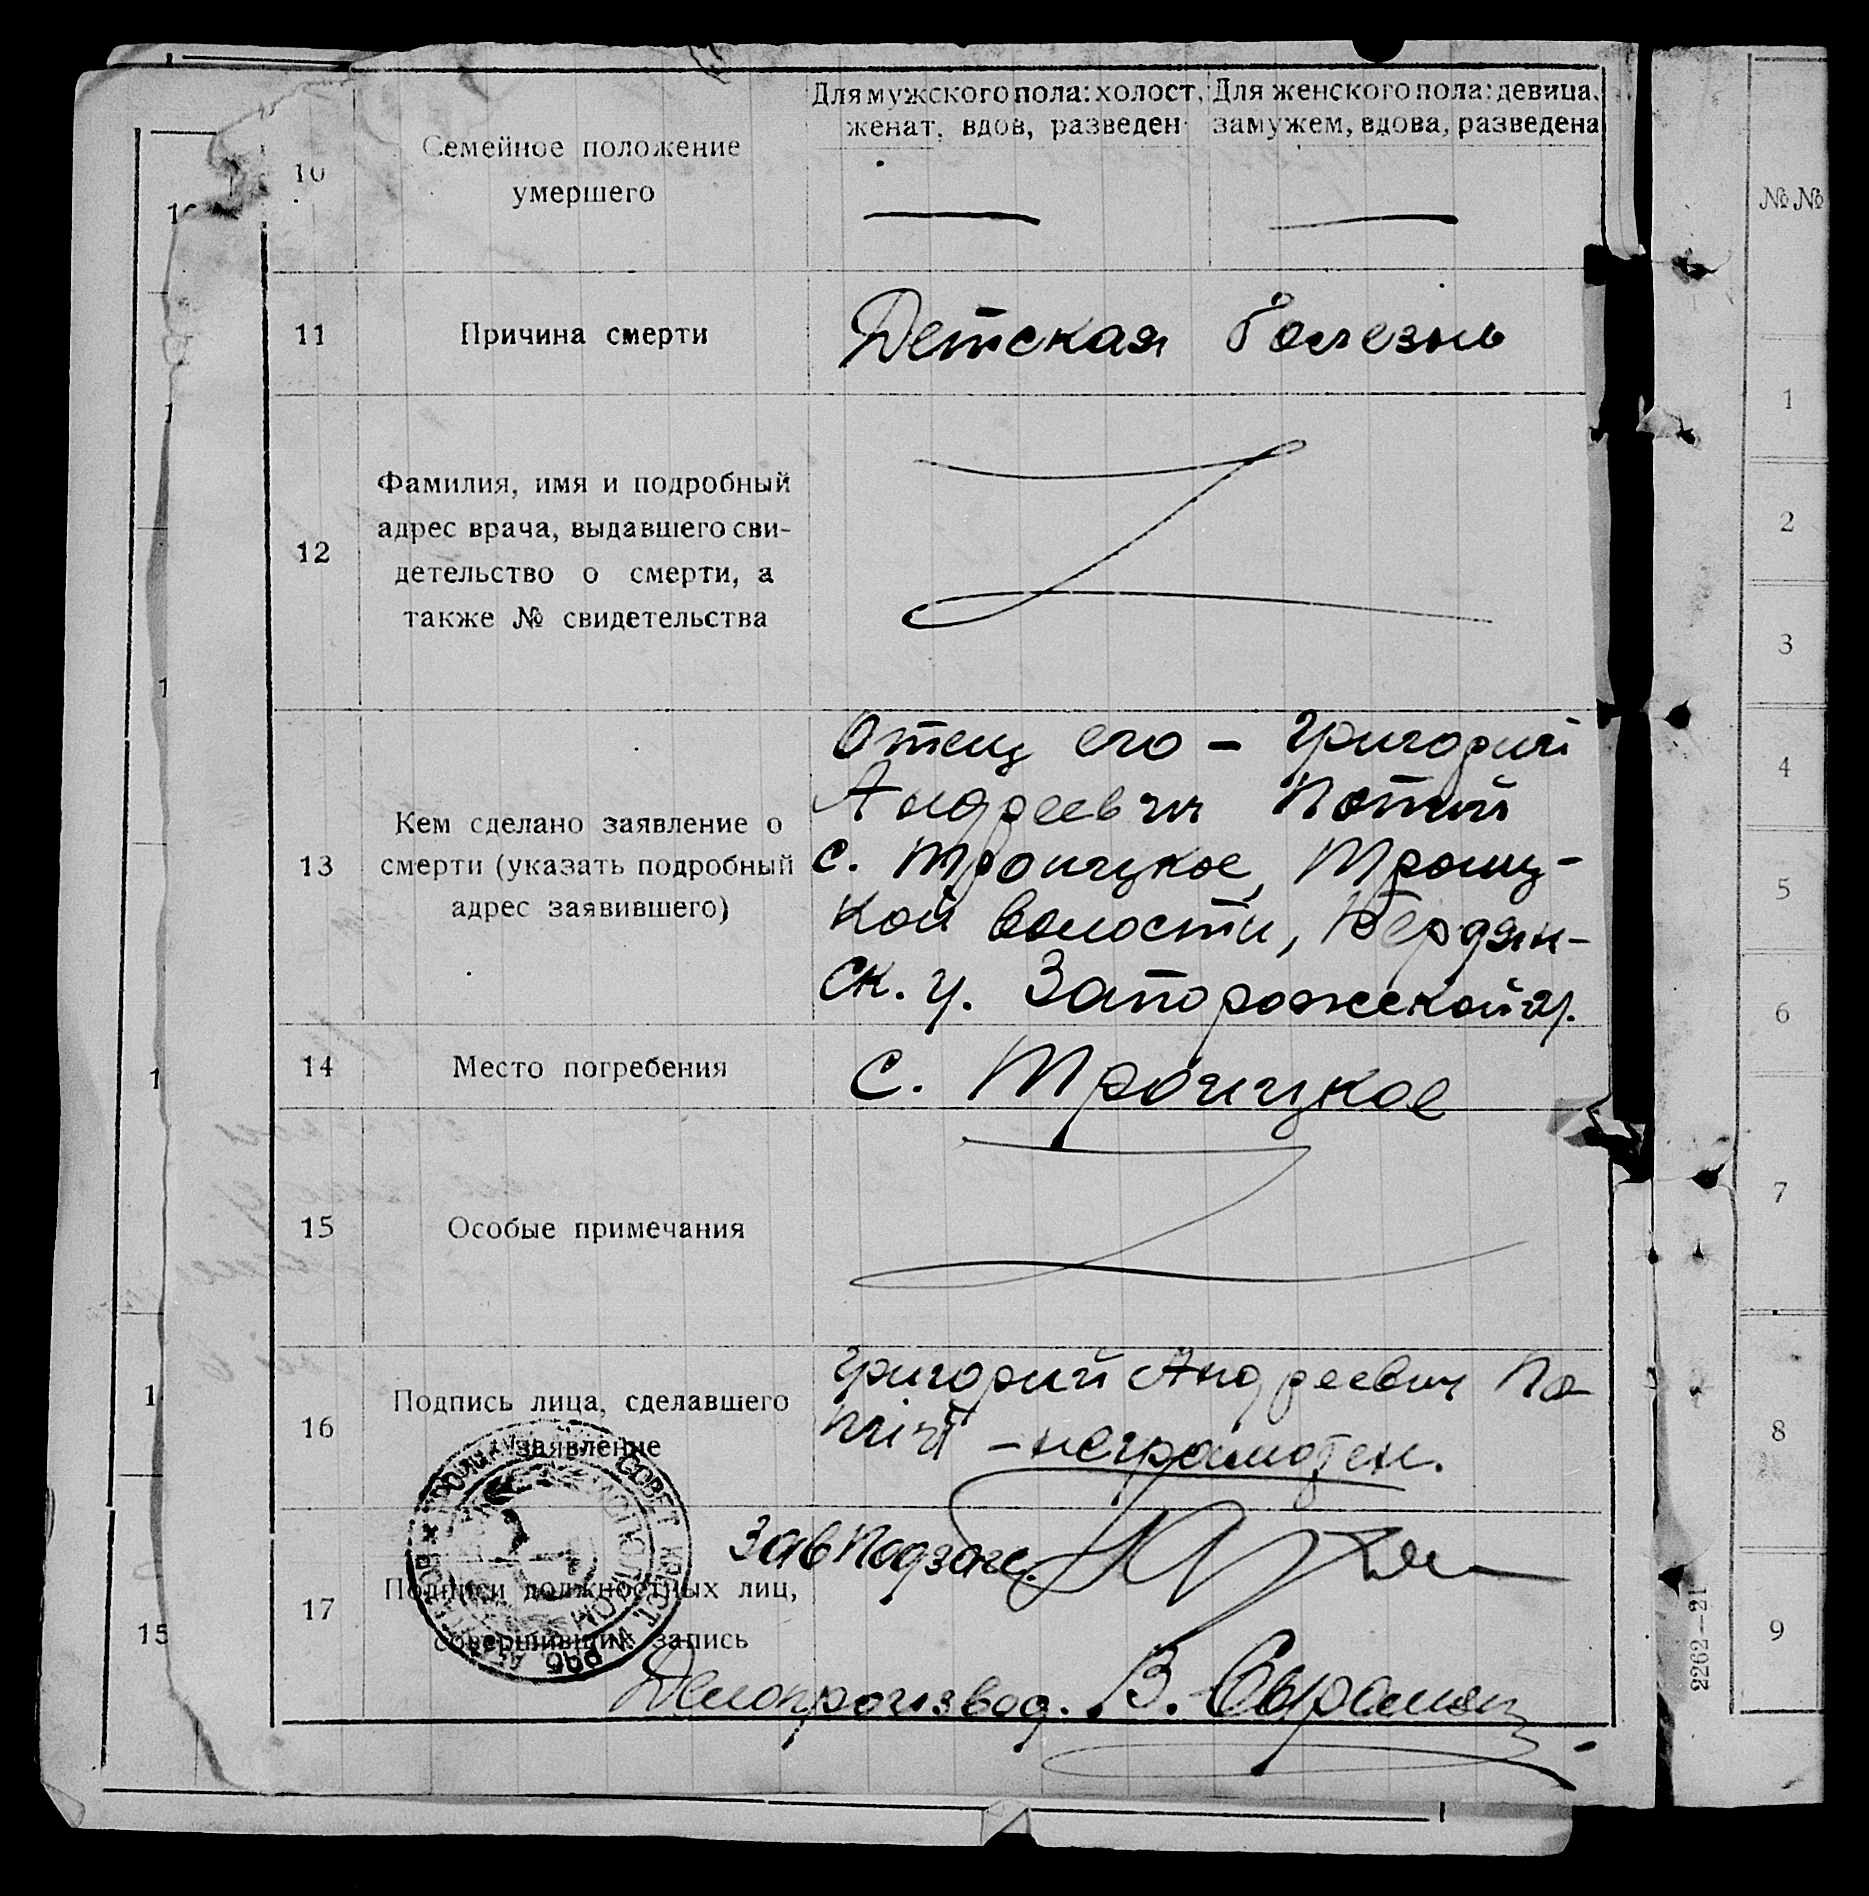 10
Семейное положение
умершего
Для мужского пола: холост,
женат, вдов, разведен
Для женского пола: девица,
замужем, вдова, разведена
11
Причина смерти
Детская болезнь
12
Фамилия, имя и подробный
адрес врача, выдавшего сви-
детельство о смерти, а
также № свидетельства
13
Кем сделано заявление о
смерти (указать подробный
адрес заявившего)
Отец его – Григорий
Андреевич Потий
с. Троицкое, Троиц-
кой волости, Бердян-
ск. у. Запорожской г.
14
Место погребения
с. Троицкое
15
Особые примечания
16
Подпись лица, сделавшего
заявление
Григорий Андреевич По
тий – неграмотен.
17
Подписи должностных лиц,
совершивших запись
Зав Подзагс.
Делопроизвод. В.
СОВЕТ КРЕСТ. И РАБ.
ИСПОЛКОМ
15
№№
1
2
3
4
5
6
7
8
9
2262—21